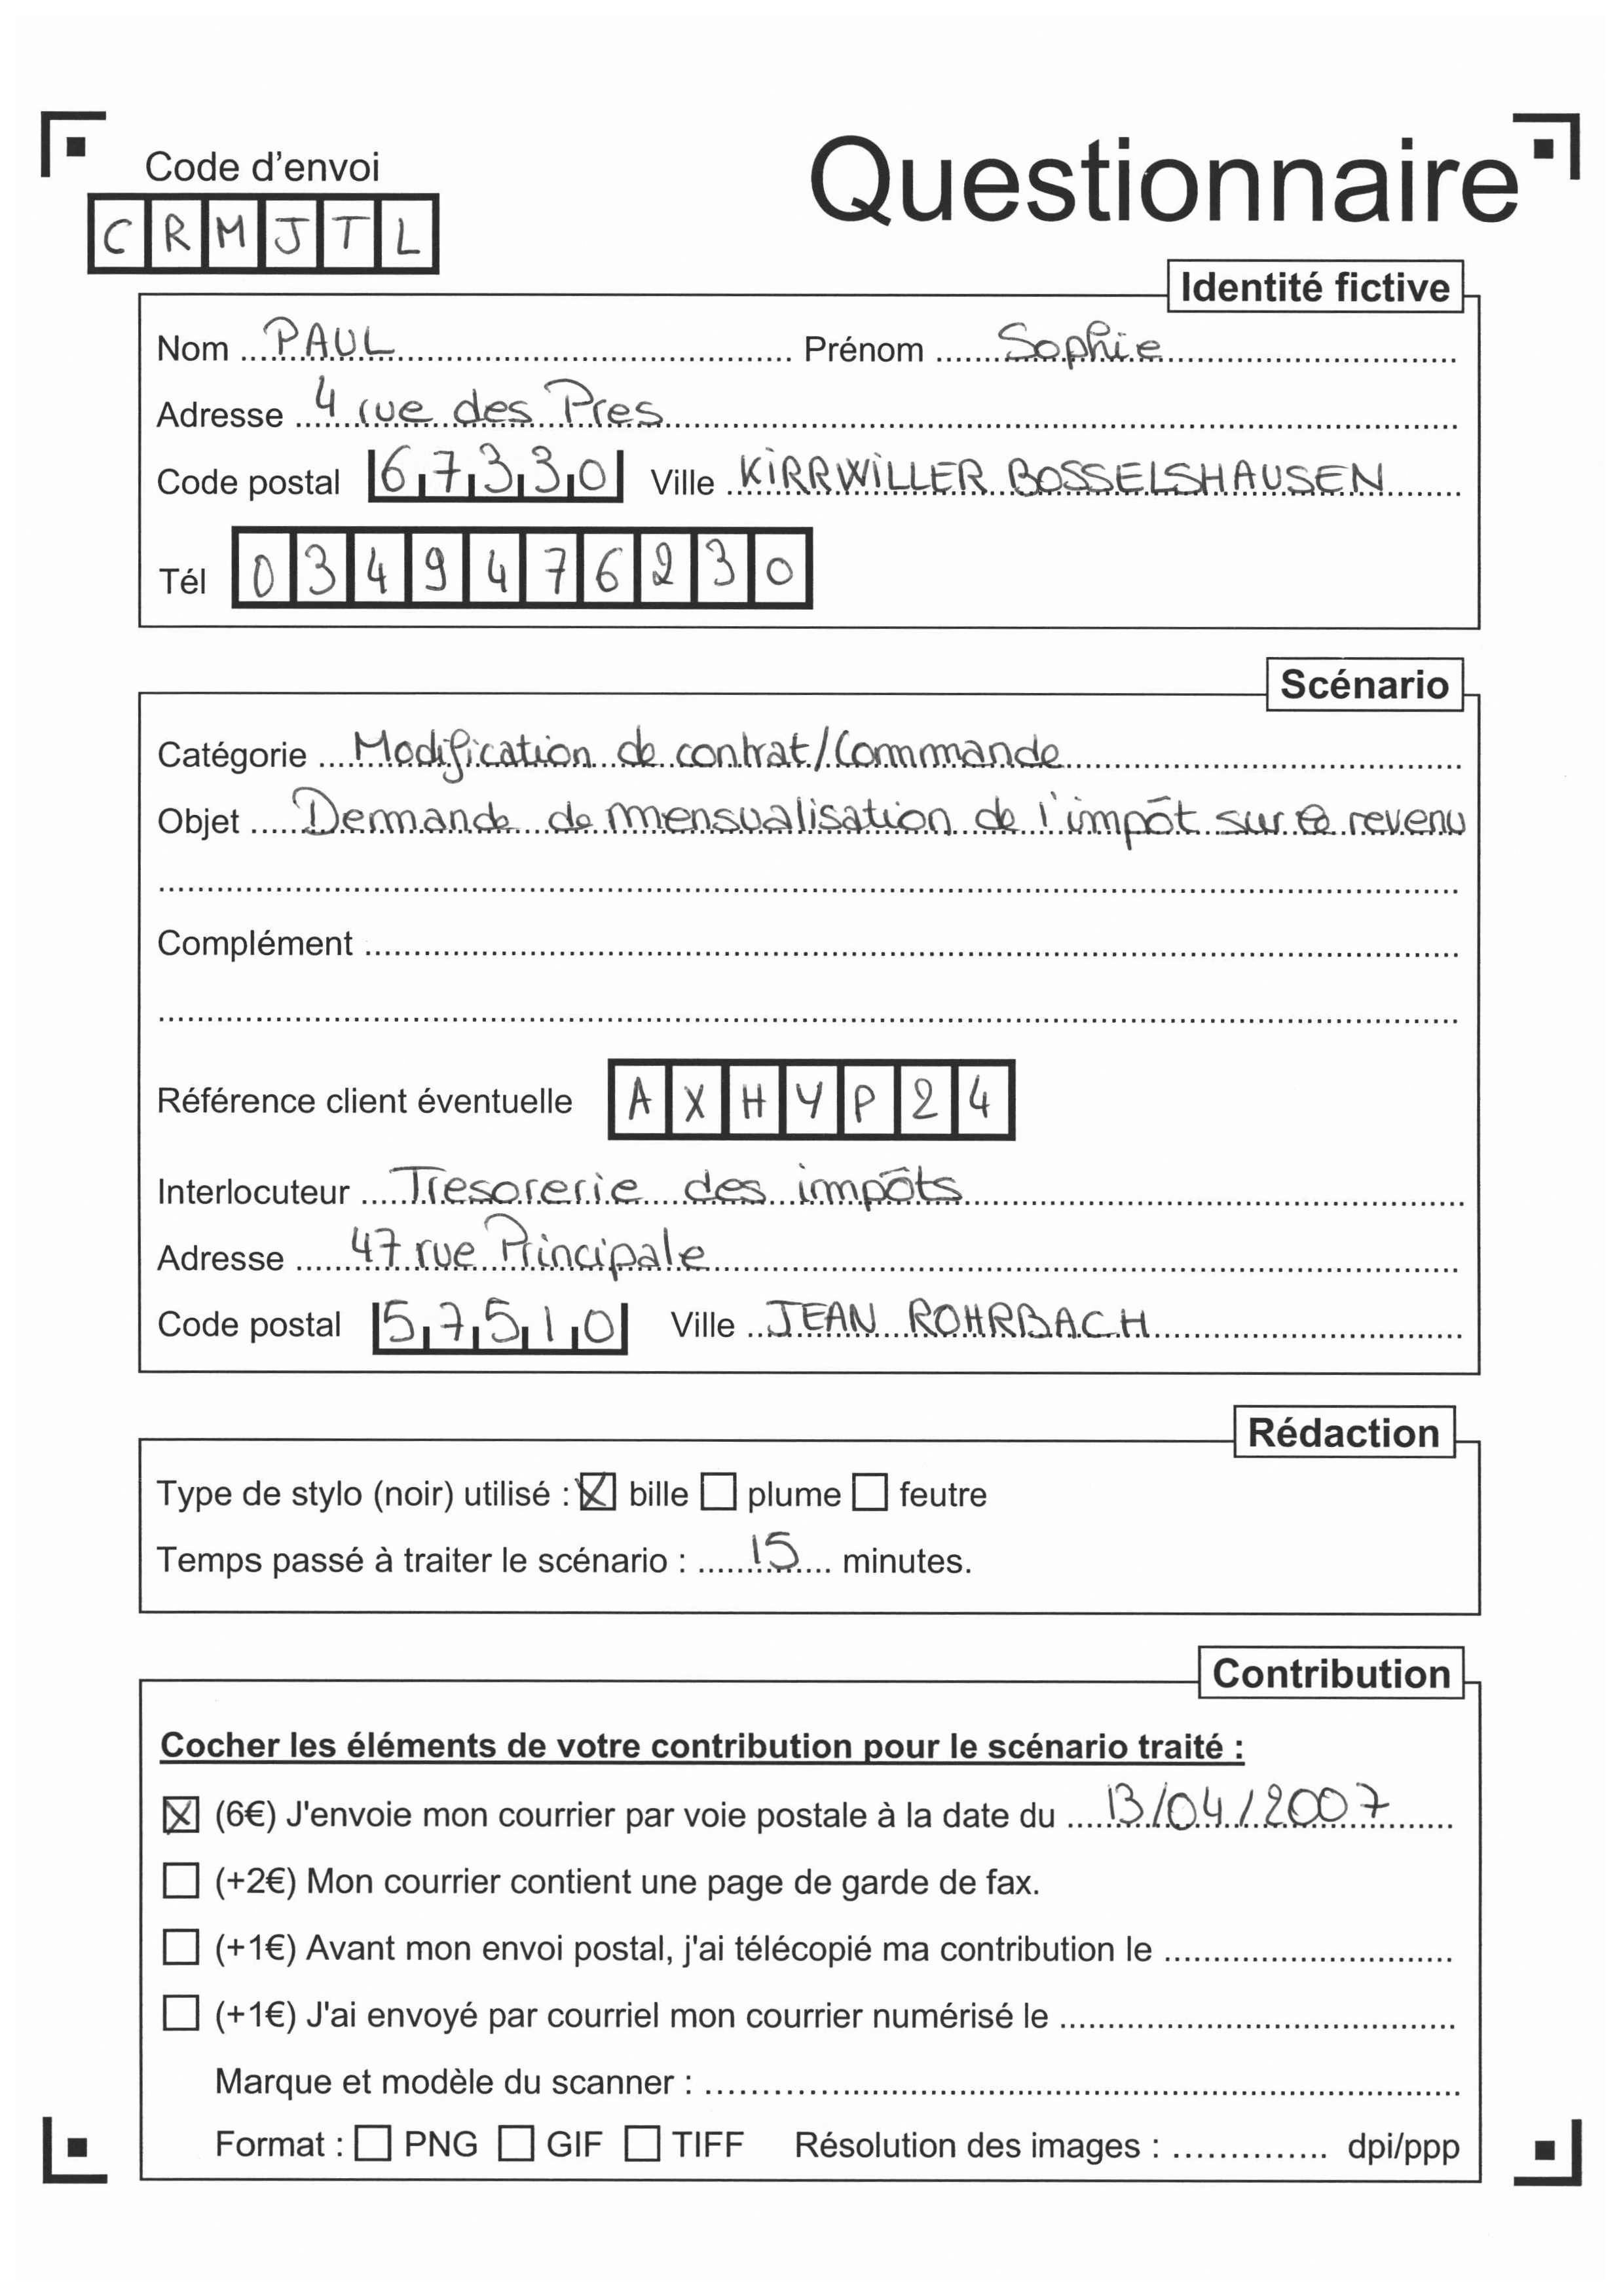 Code d'envoi
CRMJTL
Questionnaire
Identité fictive
Nom PAUL Prénom Sophie
Adresse 4 rue des Pres
Code postal 67330 Ville KIRRWILLER BOSSELSHAUSEN
Tél 0349476230
Scénario
Catégorie Modification de contrat/Commande
Objet Demande de mensualisation de l'impôt sur le revenu
Complément
Référence client éventuelle AXHYP24
Interlocuteur Tresorerie des impôts
Adresse 47 rue Principale
Code postal 57510 Ville JEAN ROHRBACH
Rédaction
Type de stylo (noir) utilisé : ☒ bille ☐ plume ☐ feutre
Temps passé à traiter le scénario : 15 minutes.
Contribution
Cocher les éléments de votre contribution pour le scénario traité :
☒ (6€) J'envoie mon courrier par voie postale à la date du 13/04/2007
☐ (+2€) Mon courrier contient une page de garde de fax.
☐ (+1€) Avant mon envoi postal, j'ai télécopié ma contribution le
☐ (+1€) J'ai envoyé par courriel mon courrier numérisé le
Marque et modèle du scanner :
Format : ☐ PNG ☐ GIF ☐ TIFF Résolution des images : dpi/ppp